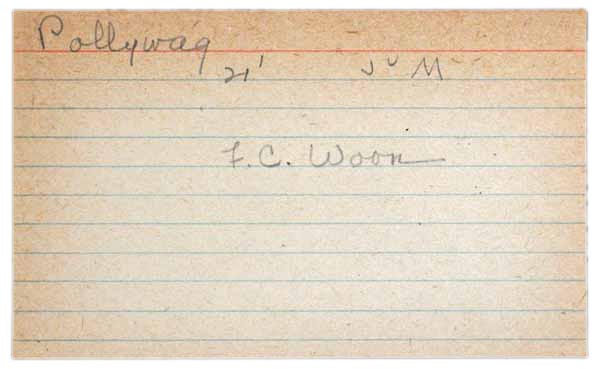 Pollywag
21' J U M
F. C. Woon